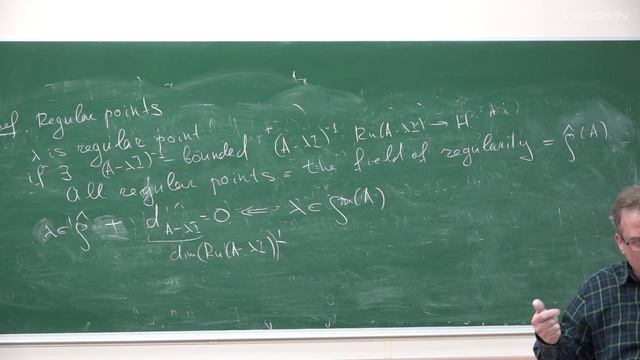 ef. Regular points
λ is regular point
if ∃ (A-λI)⁻¹ - bounded (A-λI)⁻¹ Ran(A-λI) → H
All regular points = the field of regularity = ρ̂(A)
λ ∈ ρ̂ + d_{A-λI} = 0 ⇐ λ ∈ ρ(A)
dim(Ran(A-λI))^⊥